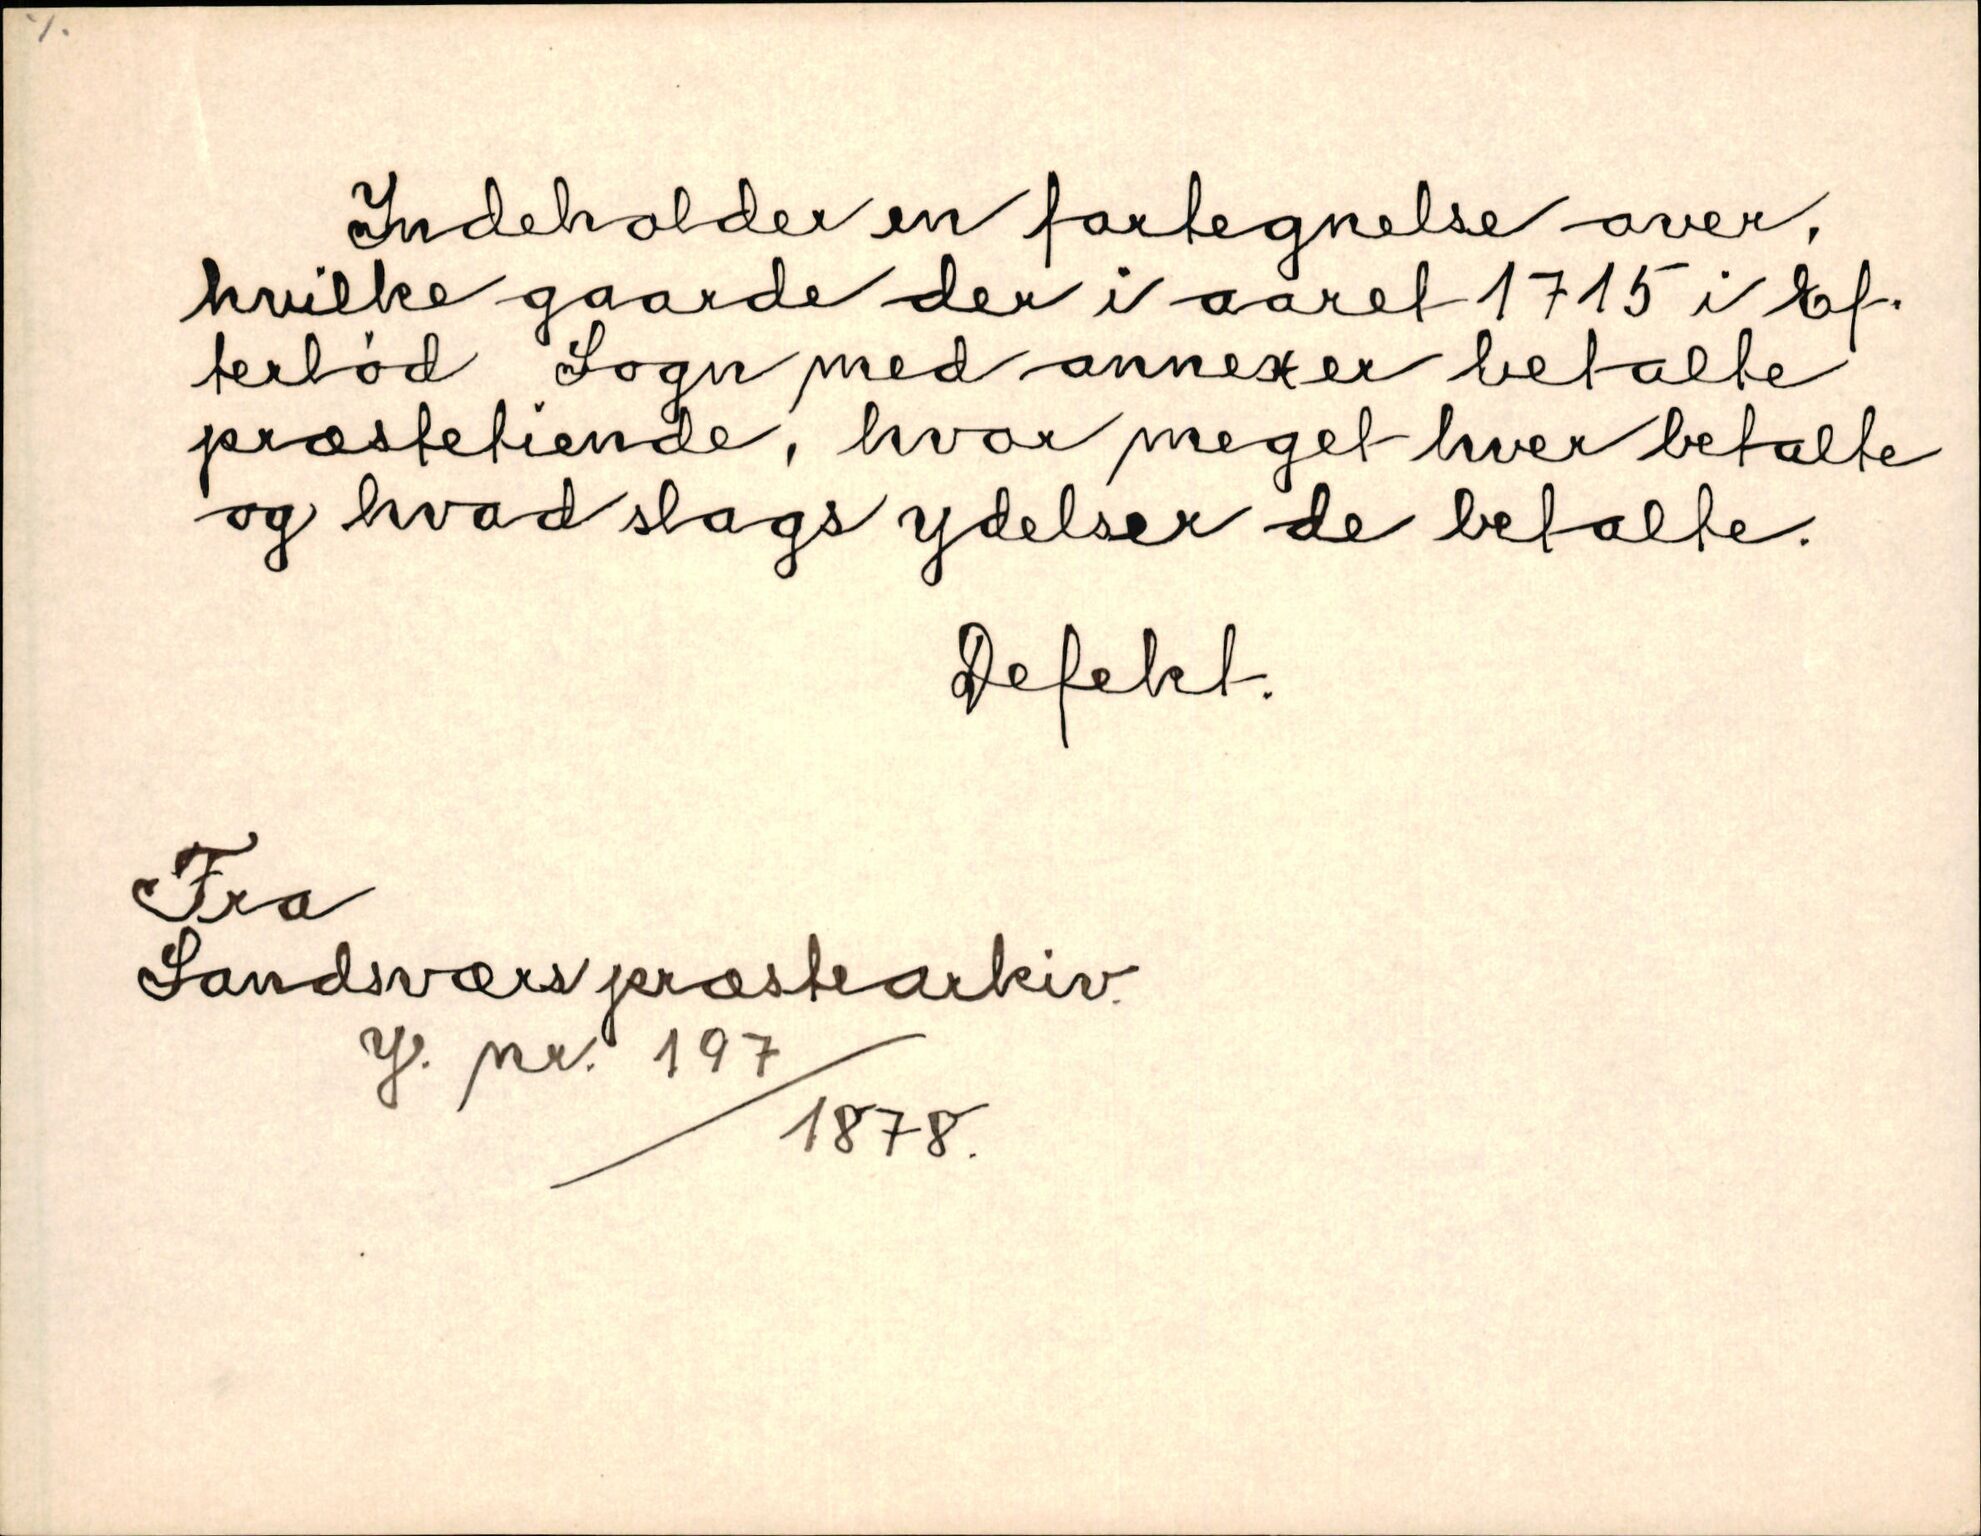 Indeholder en fortegnelse over,
hvilke gaarde der i aaret 1715 i Ef-
terlöd Sogn med annexer betalte
præstetiende, hvor meget hver betalte
og hvad slags ydelser de betalte.
Defekt.
Fra
Sandsværs præstearkiv.
J. nr. 197/
1878.